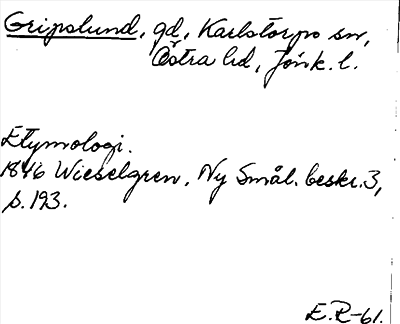 Gripslund, gd, Karlstorps sn,
Östra hd, Jönk. l.
Etymologi.
1846 Wieselgren, Ny Smål. beskr. 3,
s. 193.
E.R-61.